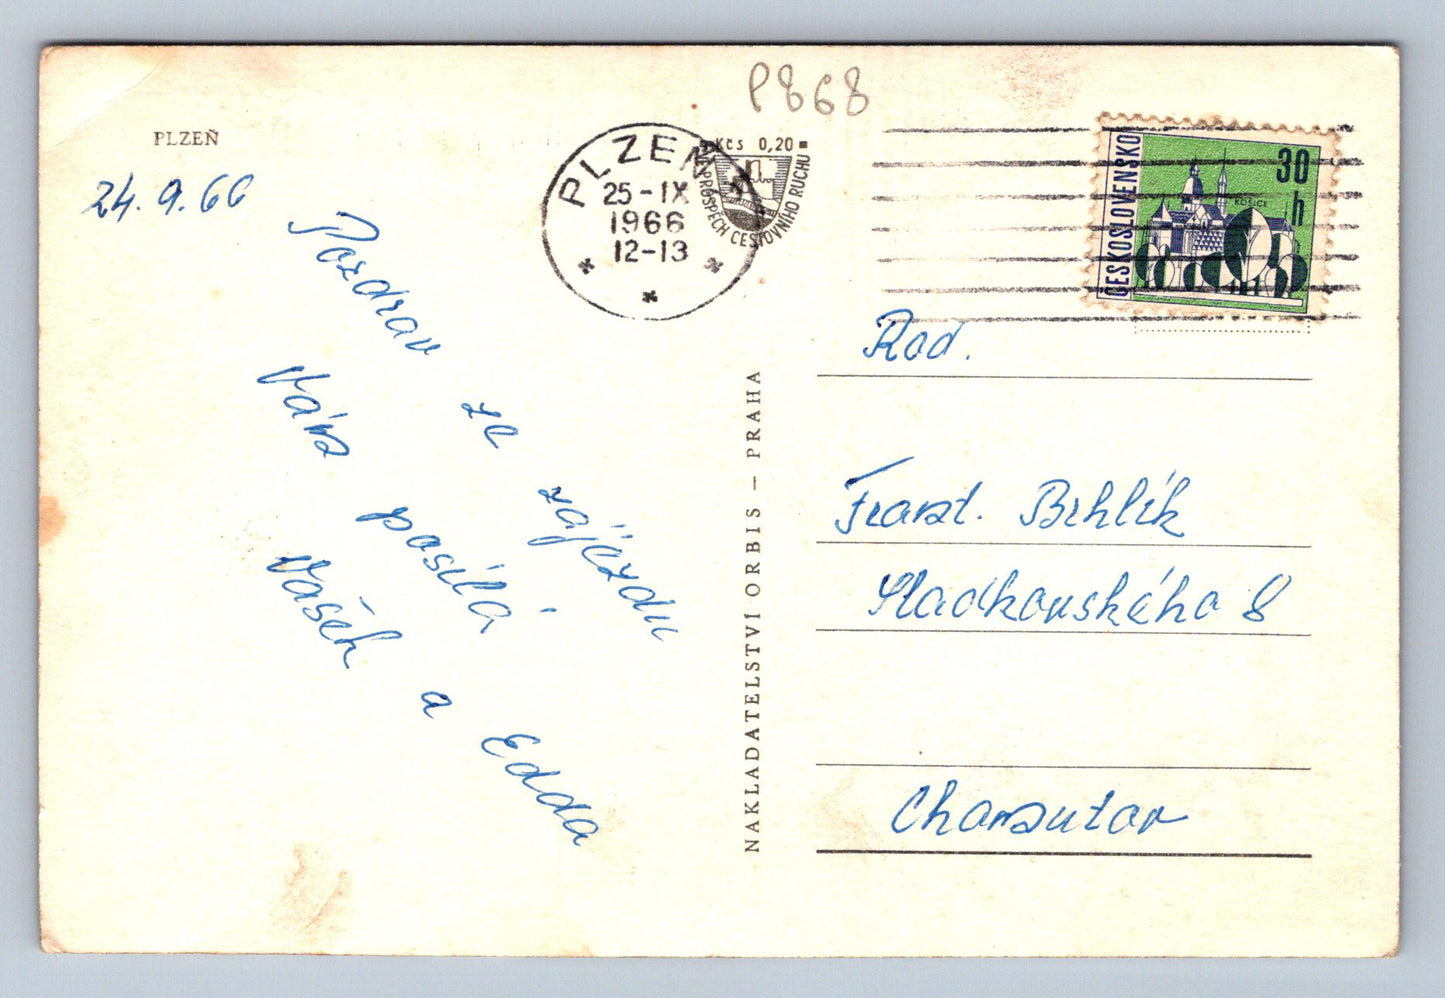 P868
PLZEŇ
24. 9. 66
Pozdrav ze zájezdu
Vám posílá
Vašek a Edda
PLZEŇ 1
25-IX
1966
12-13
Kčs 0,20
VE PROSPĚCH CESTOVNÍHO RUCHU
ČESKOSLOVENSKO
30 h
KOŠICE
NAKLADATELSTVÍ ORBIS – PRAHA
Rod.
Frant. Brhlík
Sladkovského 8
Chomutov